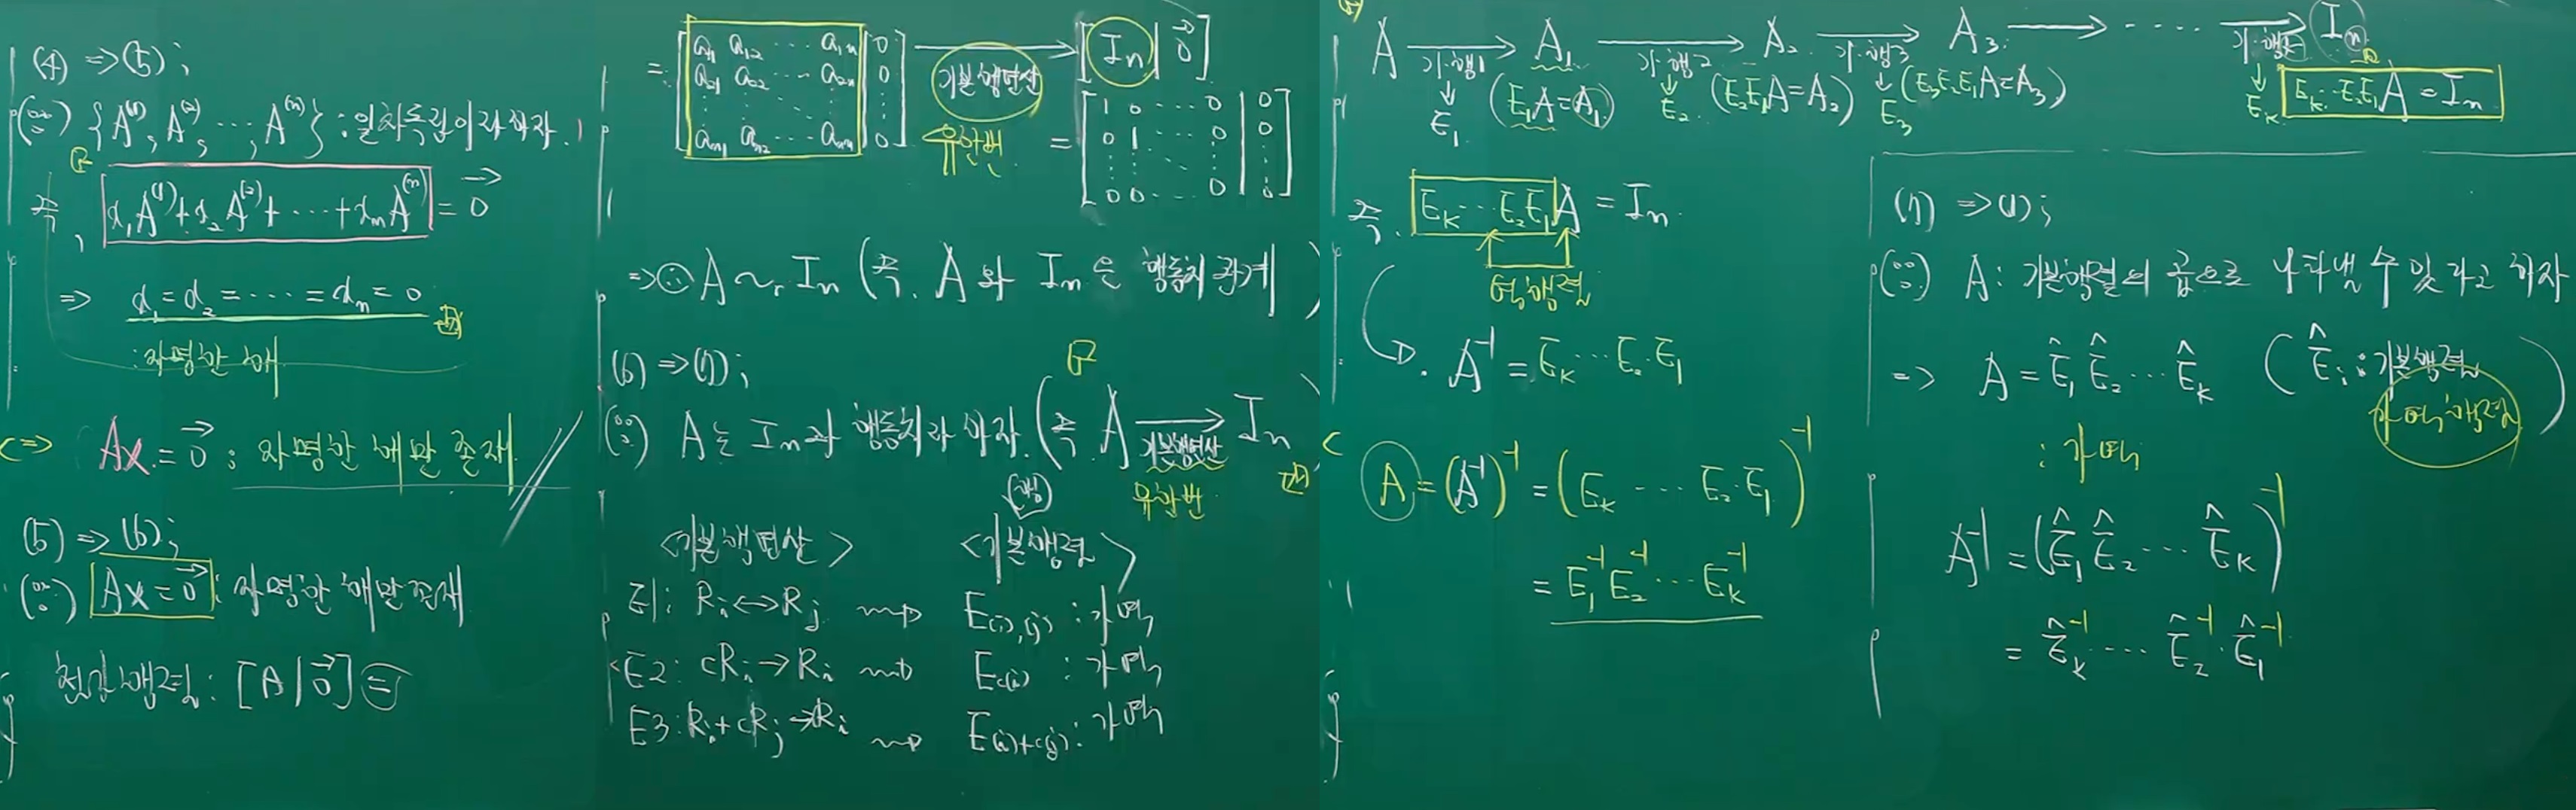 (4) ⇒ (5);
(∵) {A⁽¹⁾, A⁽²⁾, ⋯, A⁽ⁿ⁾} : 일차독립이라 하자.
즉, x₁A⁽¹⁾+x₂A⁽²⁾+⋯+xₙA⁽ⁿ⁾ = 0⃗
⇒ x₁=x₂=⋯=xₙ=0
: 자명한 해
⟺ Ax = 0⃗ : 자명한 해만 존재
(5) ⇒ (6);
(∵) Ax = 0⃗ : 자명한 해만 존재
첨가행렬: [A | 0⃗] =
= [a₁₁ a₁₂ ⋯ a₁ₙ | 0
a₂₁ a₂₂ ⋯ a₂ₙ | 0
⋮
aₙ₁ aₙ₂ ⋯ aₙₙ | 0] → [Iₙ | 0⃗]
기본행연산
유한번
= [1 0 ⋯ 0 | 0
0 1 ⋯ 0 | 0
⋮
0 0 ⋯ 0 | 0]
⇒ ∴ A ~r Iₙ (즉, A와 Iₙ은 행동치 관계)
(6) ⇒ (7);
(∵) A는 Iₙ과 행동치라 하자. (즉 A → Iₙ
기본행연산
유한번
(행)
<기본행연산> <기본행렬>
E1: Rᵢ ↔ Rⱼ ⇝ E(i),(j) : 가역
E2: cRᵢ → Rᵢ ⇝ Ec(i) : 가역
E3: Rᵢ+cRⱼ → Rᵢ ⇝ E(i)+c(j) : 가역
A → A₁ → A₂ → A₃ → ⋯ → Iₙ
기·행1 기·행2 기·행3 기·행k
↓ E₁ (E₁A=A₁) ↓ E₂ (E₂E₁A=A₂) ↓ E₃ (E₃E₂E₁A=A₃) ↓ Eₖ Eₖ⋯E₂E₁A = Iₙ
즉, Eₖ⋯E₂E₁A = Iₙ
역행렬
A⁻¹ = Eₖ⋯E₂·E₁
A = (A⁻¹)⁻¹ = (Eₖ ⋯ E₂·E₁)⁻¹
= E₁⁻¹E₂⁻¹⋯Eₖ⁻¹
(7) ⇒ (1);
(∵) A: 기본행렬의 곱으로 나타낼 수 있다고 하자
⇒ A = Ê₁Ê₂⋯Êₖ (Êᵢ : 기본행렬)
가역행렬
: 가역
A⁻¹ = (Ê₁Ê₂⋯Êₖ)⁻¹
= Êₖ⁻¹⋯Ê₂⁻¹·Ê₁⁻¹